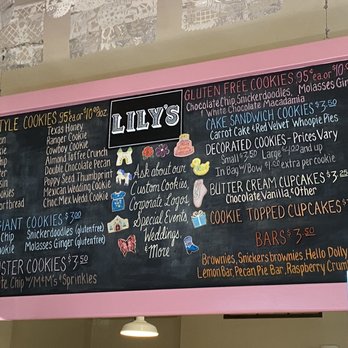 STYLE COOKIES 95¢ea or $10.00/doz.
Texas Honey
Ranger Cookie
Cowboy Cookie
Almond Toffee Crunch
Double Chocolate Pecan
Poppy Seed Thumbprint
Mexican Wedding Cookie
Choc Mex Wedd Cookie
GIANT COOKIES $3.00
Chip Snickerdoodles (gluten free)
Molasses Ginger (gluten free)
MONSTER COOKIES $3.50
Chip w/M&M's & Sprinkles
LILY'S
Ask about our
Custom Cookies,
Corporate Logos,
Special Events
Weddings,
& More
GLUTEN FREE COOKIES 95¢ea or
Chocolate Chip, Snickerdoodles, Molasses Ginger
& White Chocolate Macadamia
CAKE SANDWICH COOKIES $3.50
Carrot Cake & Red Velvet Whoopie Pies
DECORATED COOKIES - Prices Vary
Small $3.50 Large and up
In Bag w/Bow $1.00 extra per cookie
BUTTER CREAM CUPCAKES
Chocolate, Vanilla & Other
COOKIE TOPPED CUPCAKES
BARS $3.50
Brownies, Snickers brownies, Hello Dolly
Lemon Bar, Pecan Pie Bar, Raspberry